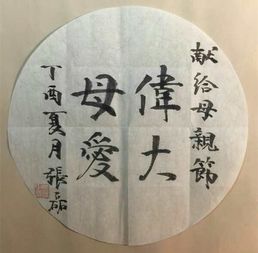 献给母親節
偉大
母愛
丁酉夏月張磊